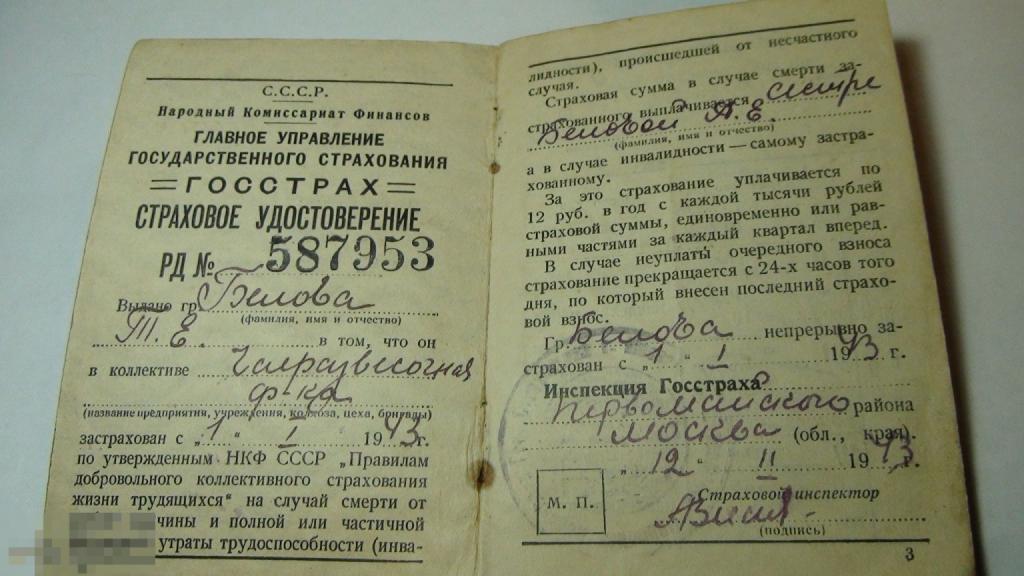 С.С.С.Р.
Народный Комиссариат Финансов
ГЛАВНОЕ УПРАВЛЕНИЕ
ГОСУДАРСТВЕННОГО СТРАХОВАНИЯ
ГОССТРАХ
СТРАХОВОЕ УДОСТОВЕРЕНИЕ
РД № 587953
Выдано гр. Белова
(фамилия, имя и отчество)
Т. Е. в том, что он
в коллективе Чаеразвесочная
ф-ка
(название предприятия, учреждения, колхоза, цеха, бригады)
застрахован с „1" I 1943 г.
по утвержденным НКФ СССР „Правилам
добровольного коллективного страхования
жизни трудящихся" на случай смерти от
чины и полной или частичной
утраты трудоспособности (инва-
лидности), происшедшей от несчастного
случая.
Страховая сумма в случае смерти за-
страхованного выплачивается сестре
Беловой А. Е.
(фамилия, имя и отчество)
а в случае инвалидности — самому застра-
хованному.
За это страхование уплачивается по
12 руб. в год с каждой тысячи рублей
страховой суммы, единовременно или рав-
ными частями за каждый квартал вперед.
В случае неуплаты очередного взноса
страхование прекращается с 24-х часов того
дня, по который внесен последний страхо-
вой взнос.
Гр. Белова непрерывно за-
страхован с „1" I 1943 г.
Инспекция Госстраха
Первомайского района
Москва (обл., края).
„12" II 1943 г.
М. П.
Страховой инспектор
(подпись)
3